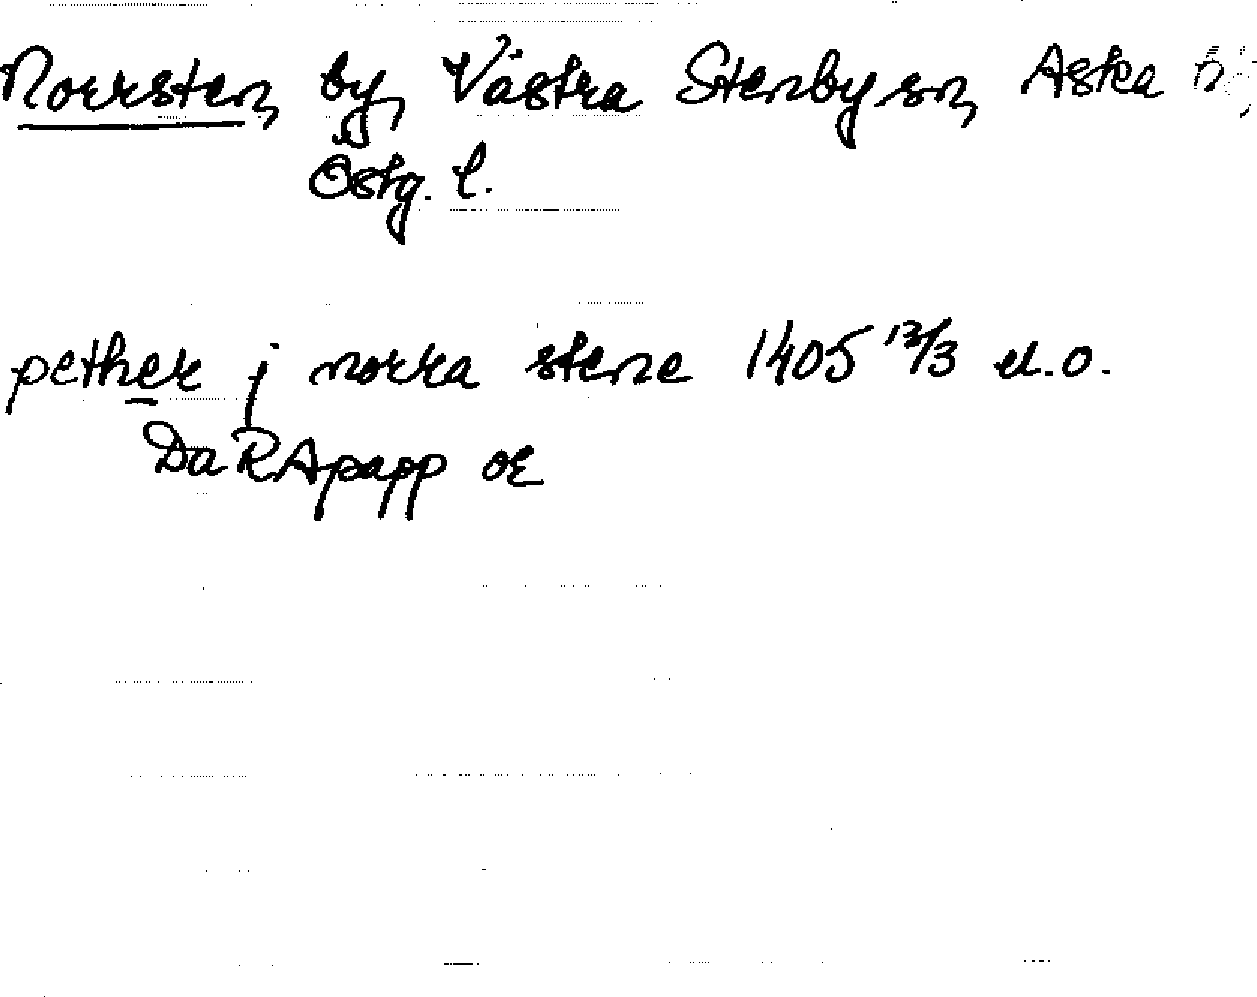 Norrsten, by, Västra Stenby sn, Aska h,
Östg. l.
pether j norra stene 1405 12/3 u.o.
Da RApapp oE